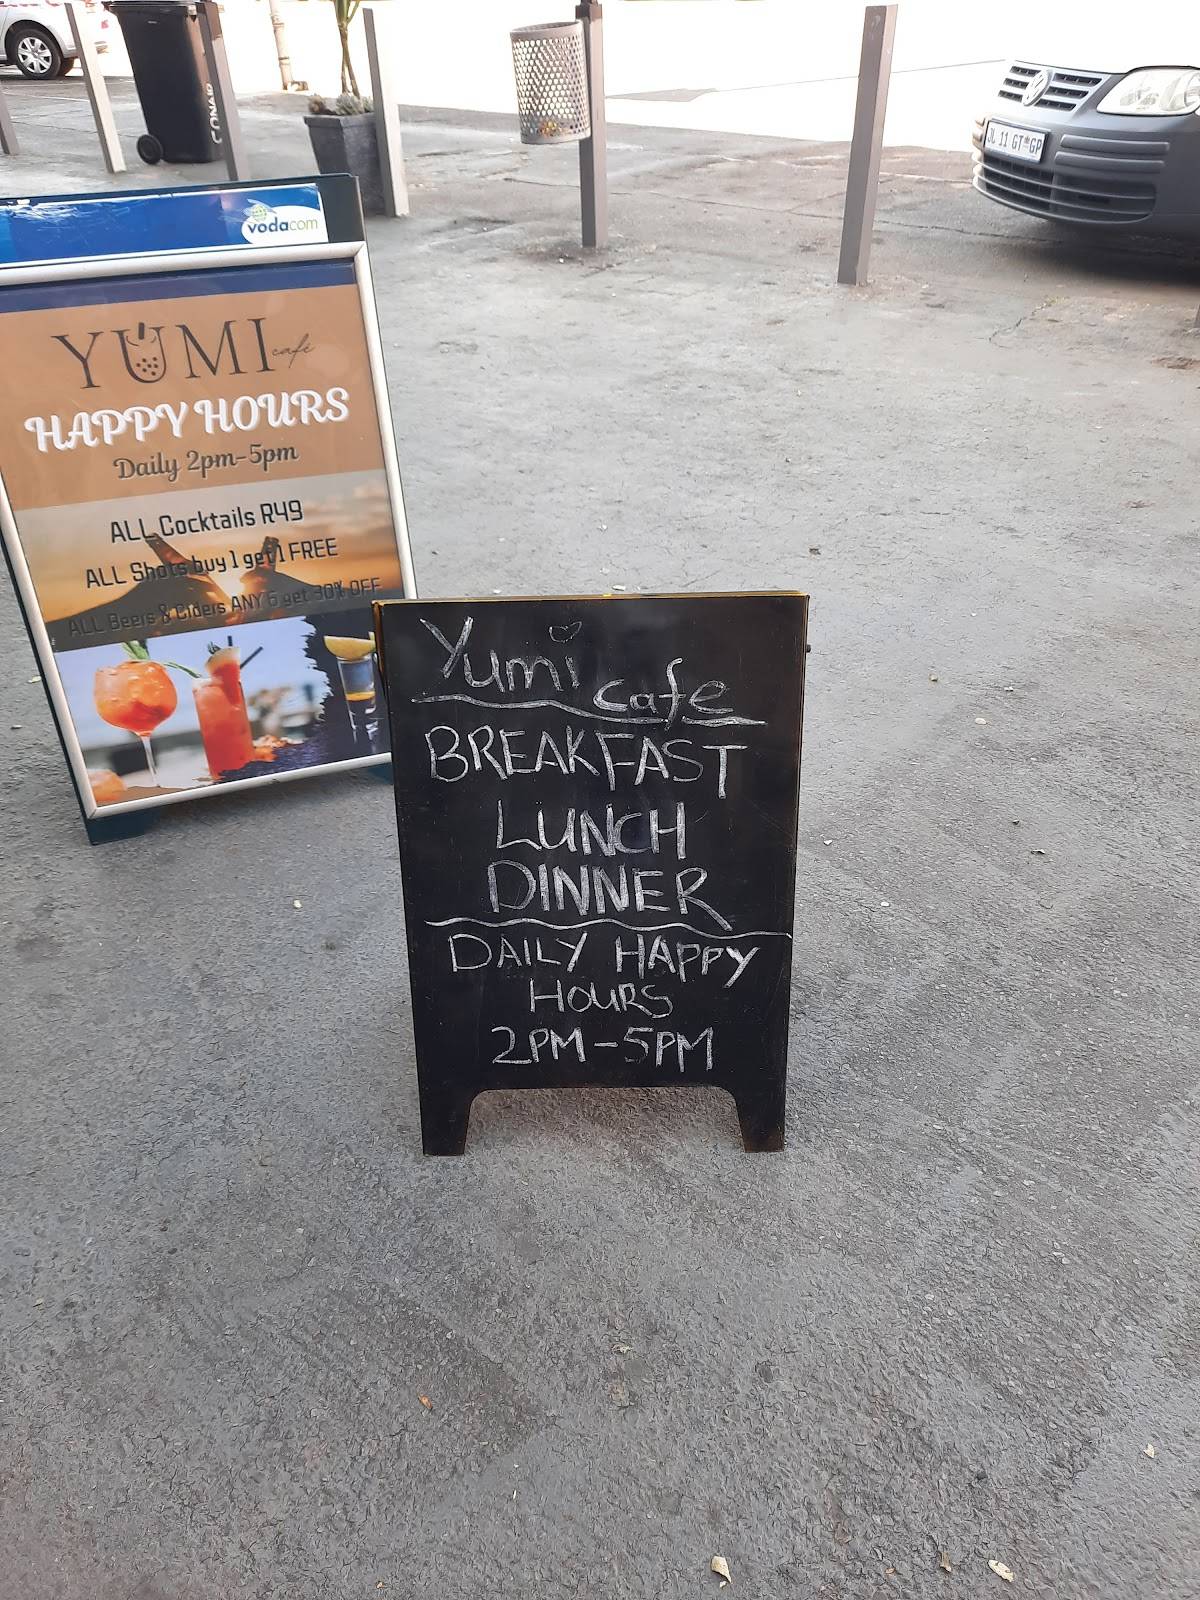 vodacom
YUMI café
HAPPY HOURS
Daily 2pm-5pm
ALL Cocktails R49
ALL Shots buy 1 get 1 FREE
ALL Beers & Ciders ANY 6 get 30% OFF
Yumi
cafe
BREAKFAST
LUNCH
DINNER
DAILY HAPPY
HOURS
2PM-5PM
JL 11 GT GP